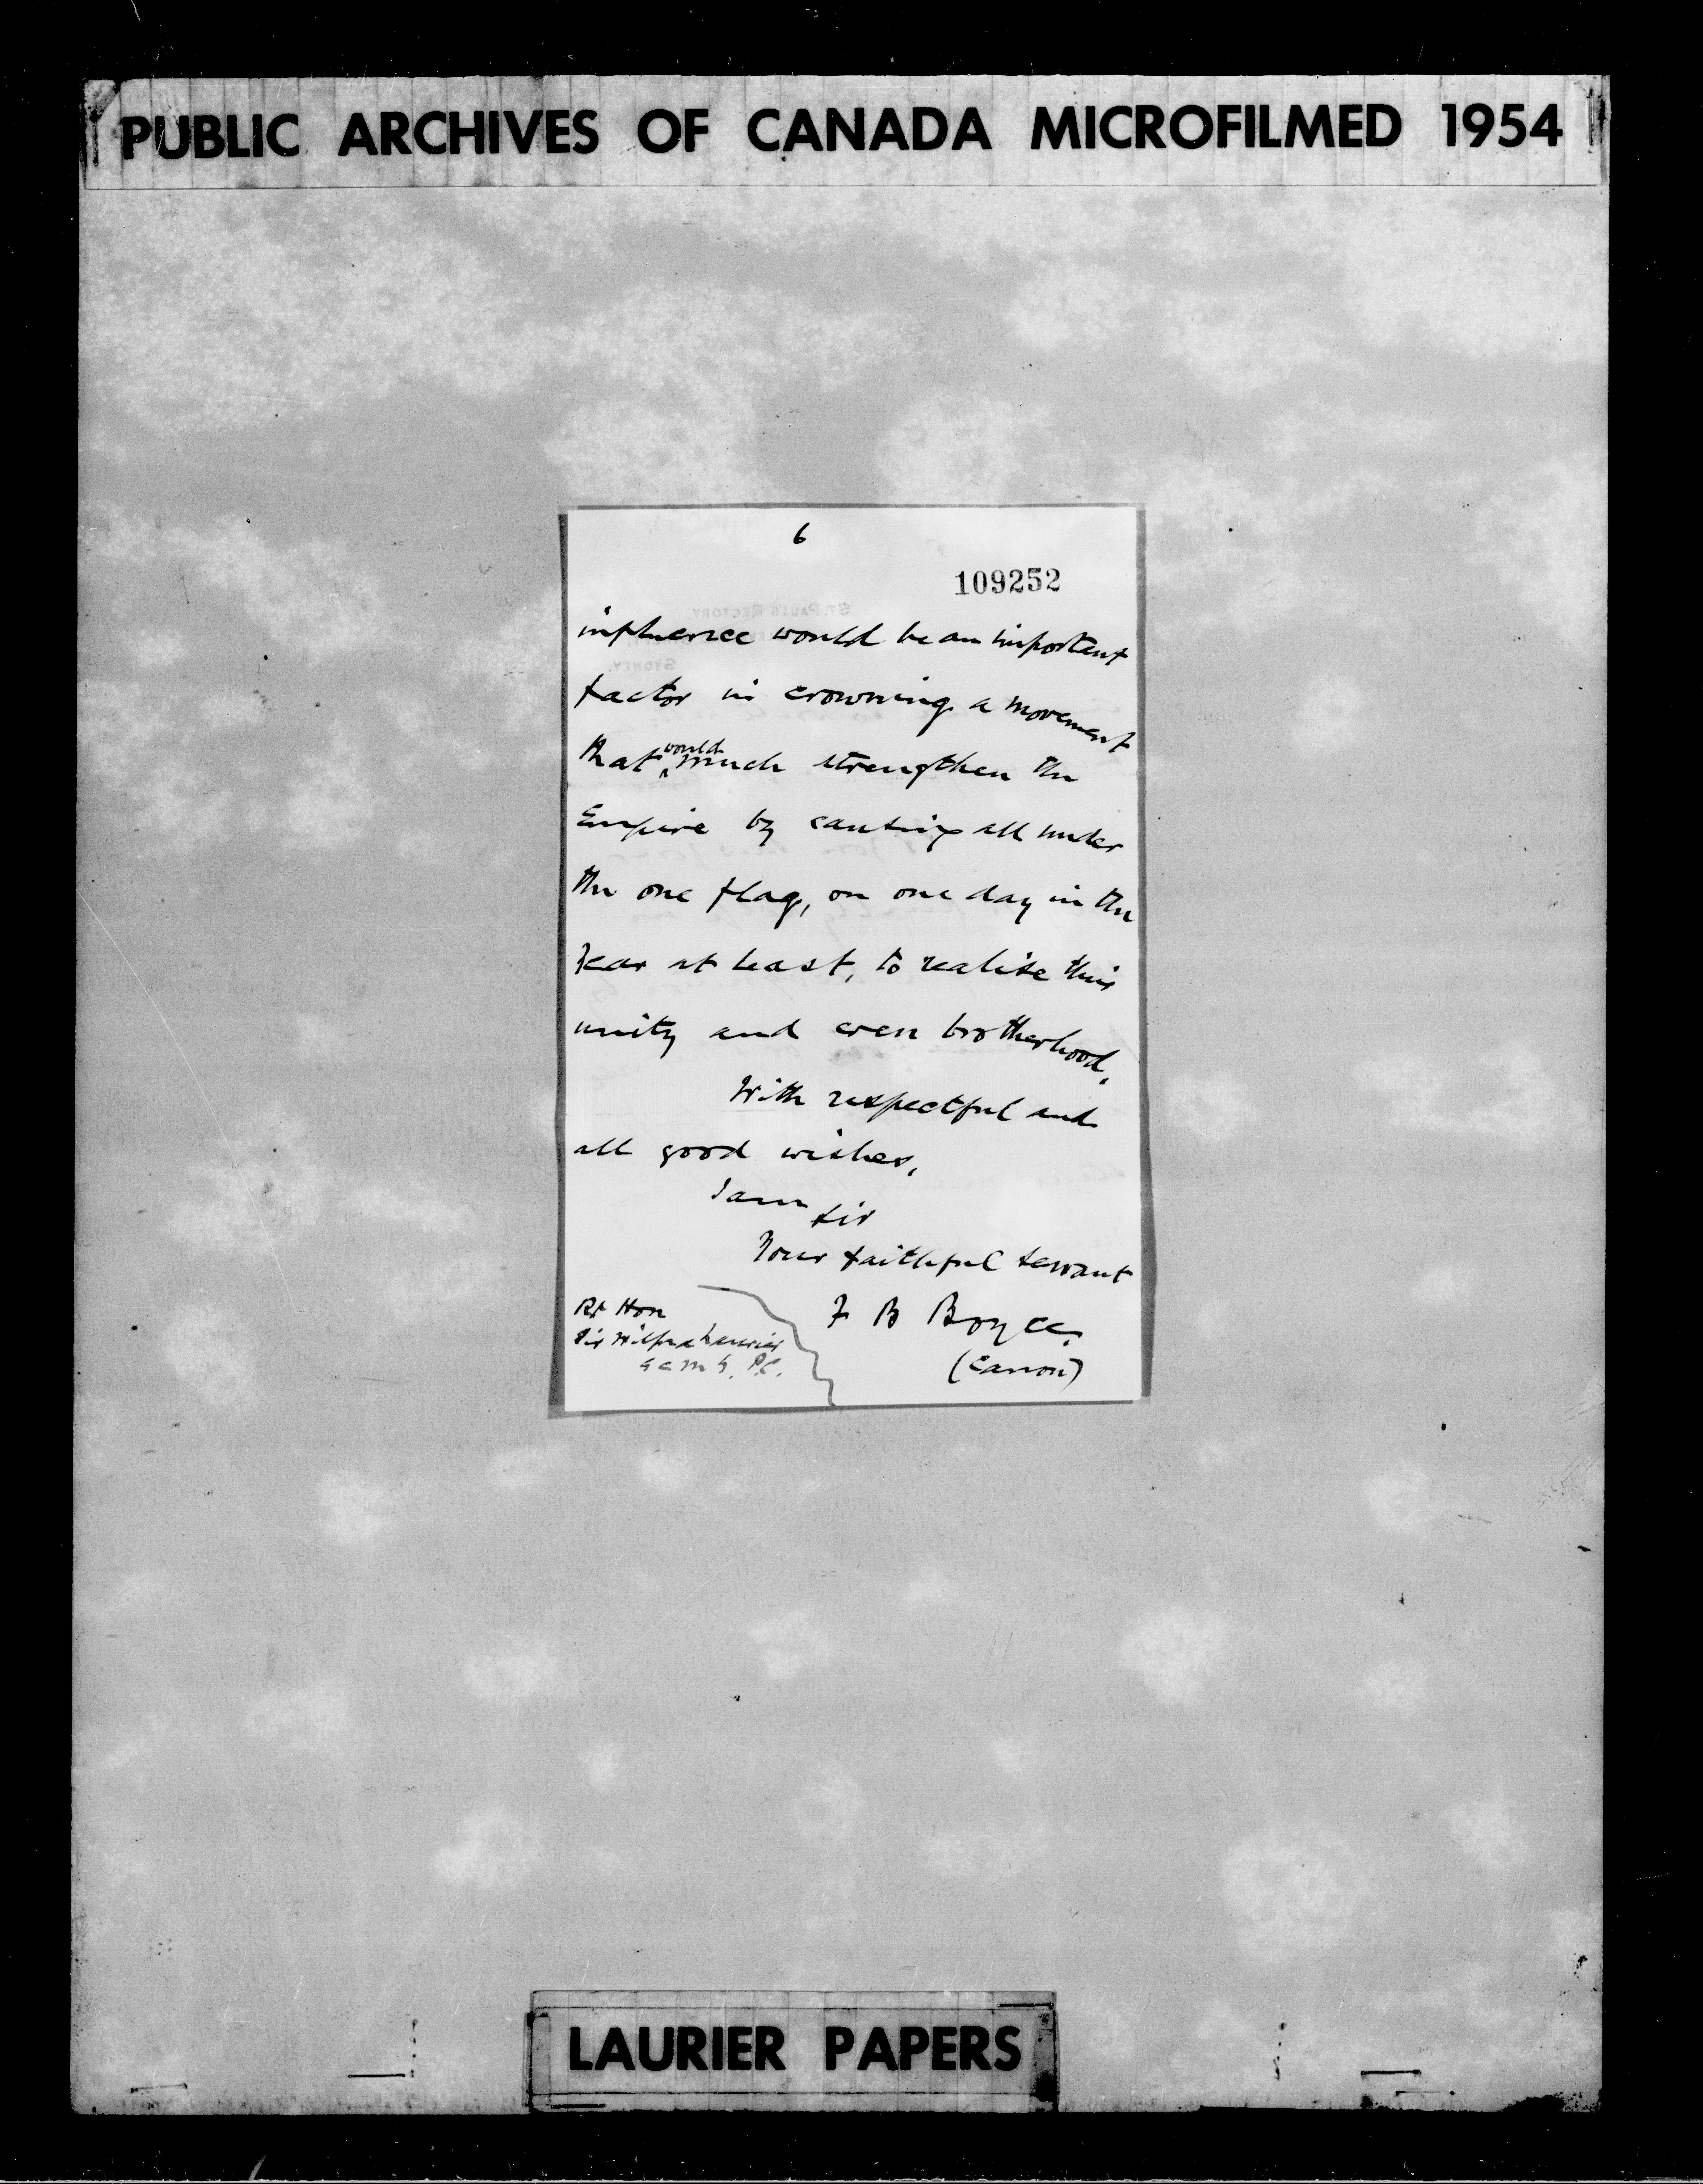 PUBLIC ARCHIVES OF CANADA MICROFILMED 1954
6
109252
ST. PAULS RECTORY
SYDNEY.
influence would be an important
factor in crowning a movement
that would much strengthen the
Empire by causing all under
the one flag, on one day in the
year at least, to realise their
unity and even brotherhood.
With respectful and
all good wishes,
I am
Sir
Your faithful servant
F B Boyce.
(Canon)
Rt Hon
Sir Wilfrid Laurier
G C M G. P.C.
LAURIER PAPERS